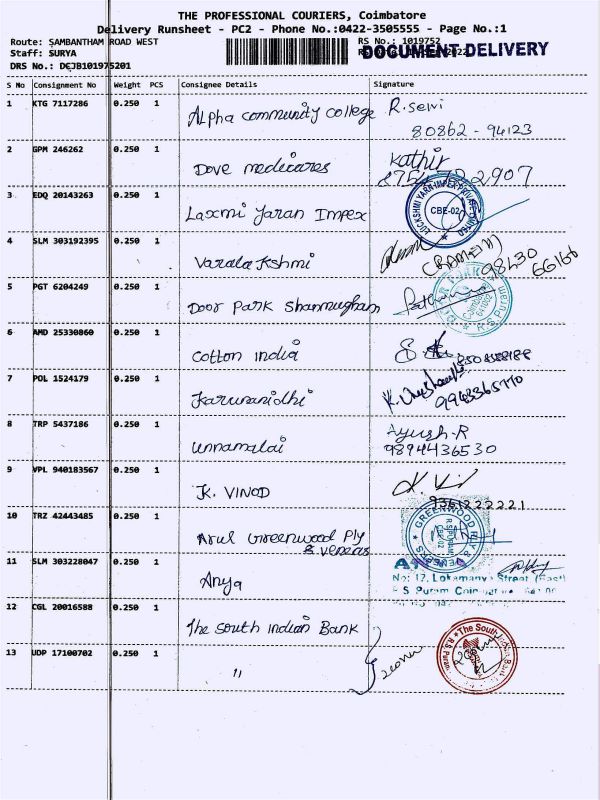 THE PROFESSIONAL COURIERS, Coimbatore
Delivery Runsheet - PC2 - Phone No.:0422-3505555 - Page No.:1
Route: SAMBANTHAM ROAD WEST
RS No.: 1019752
Staff: SURYA
DOCUMENT DELIVERY
DRS No.: DEJB101975201
S No Consignment No Weight PCS Consignee Details Signature
1 KTG 7117286 0.250 1 Alpha community college R. selvi
80862 - 94123
2 GPM 246262 0.250 1 Dove medicares Kathir
3 EDQ 20143263 0.250 1 Laxmi Yaran Impex
LUCKSHMI YARN IMPEX PRIVATE LIMITED
CBE-02
4 SLM 303192395 0.250 1 Varalakshmi
98430
66166
5 PGT 6204249 0.250 1 Door Park Shanmugham
R.S.Puram
6 AMD 25330860 0.250 1 Cotton india
7 POL 1524179 0.250 1 Karunanidhi
8 TRP 5437186 0.250 1 Unnamalai Ayush.R
9894436530
9 VPL 940183567 0.250 1 K. VINOD
9361222221
10 TRZ 42443485 0.250 1 Arul Greenwood Ply
& veneers
GREENWOOD PLY & VENEERS
R.S.PURAM
CBE-02
11 SLM 303228047 0.250 1 Anya
No: 17, Lokamanya Street (East)
R S Puram
12 CGL 20016588 0.250 1 The South Indian Bank
The South Indian Bank
R.S. Puram
13 UDP 17100702 0.250 1 "